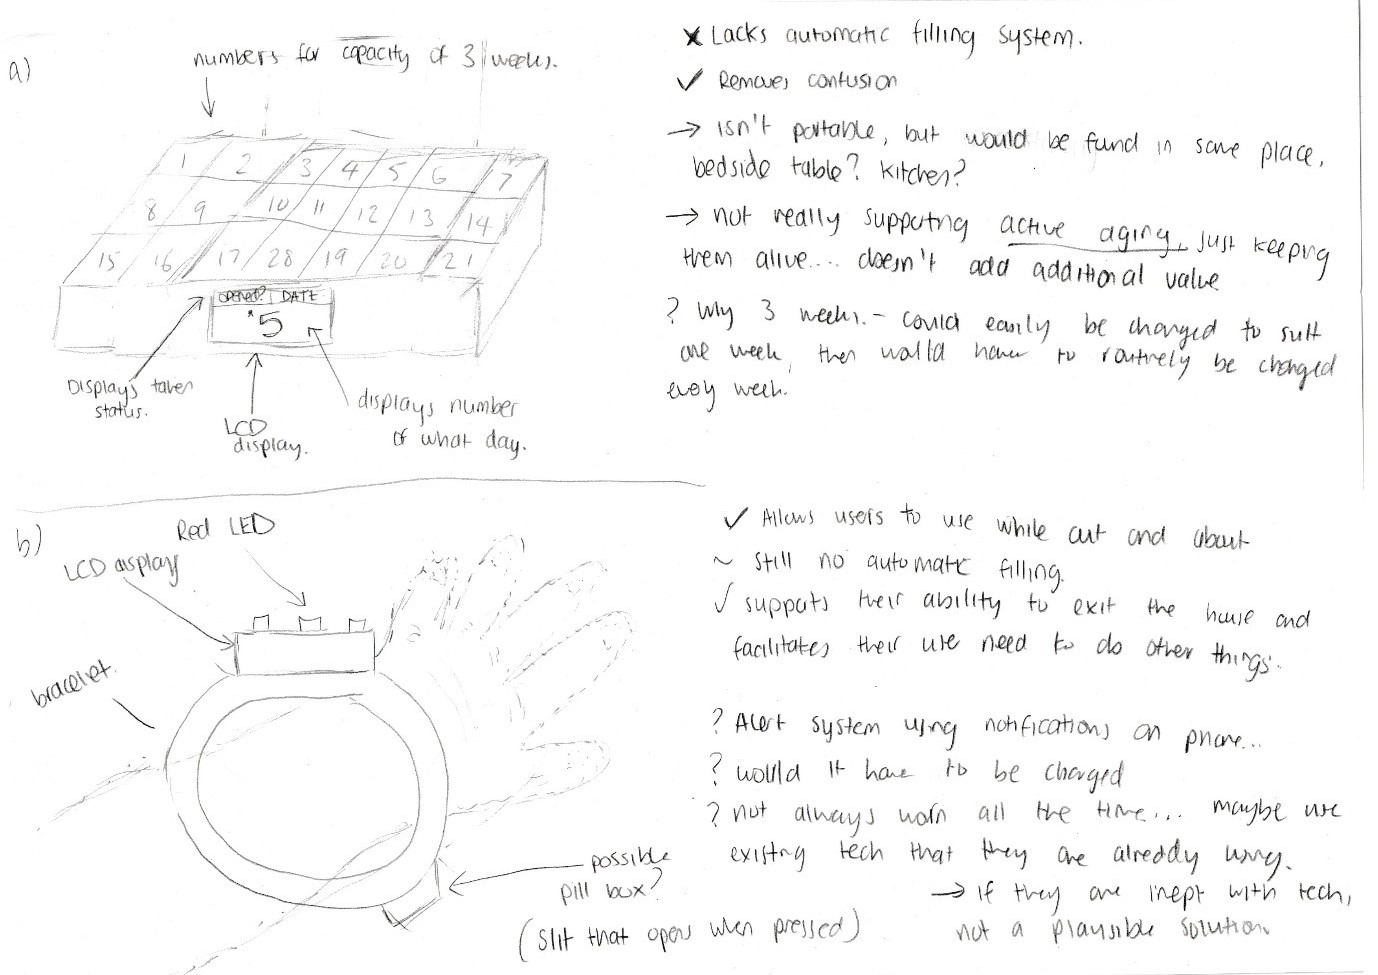 a)
numbers for capacity of 3 weeks.
1 2 3 4 5 6 7
8 9 10 11 12 13 14
15 16 17 28 19 20 21
opened? DATE
*5
Displays taken
status.
LCD
display.
displays number
of what day.
✗ Lacks automatic filling system.
✓ Removes confusion
→ isn't portable, but would be fund in same place,
bedside table? kitchen?
→ not really supporting active aging, just keeping
them alive.... doesn't add additional value
? Why 3 weeks. - could easily be changed to suit
one week, then would have to routinely be changed
every week.
b)
Red LED
LCD display
bracelet.
possible
pill box?
(slit that opens when pressed)
✓ Allows users to use while out and about
~ still no automatic filling.
✓ supports their ability to exit the house and
facilitates their use need to do other things.
? Alert system using notifications on phone...
? would it have to be charged
? not always worn all the time... maybe use
existing tech that they are already using.
→ if they are inept with tech,
not a plausible solution.